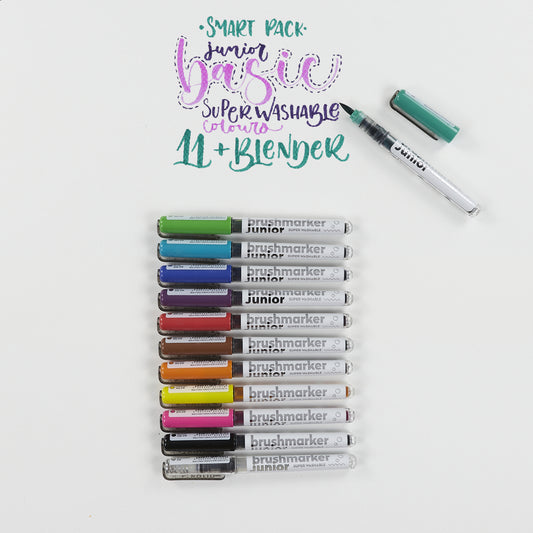 ·SMART PACK·
junior
basic
SUPER WASHABLE
colours
11 + BLENDER
junior
brushmarker
junior SUPER WASHABLE
brushmarker
junior SUPER WASHABLE
brushmarker
junior SUPER WASHABLE
brushmarker
junior SUPER WASHABLE
brushmarker
junior SUPER WASHABLE
brushmarker
junior SUPER WASHABLE
brushmarker
junior SUPER WASHABLE
brushmarker
junior SUPER WASHABLE
brushmarker
junior SUPER WASHABLE
brushmarker
junior SUPER WASHABLE
brushmarker
junior SUPER WASHABLE